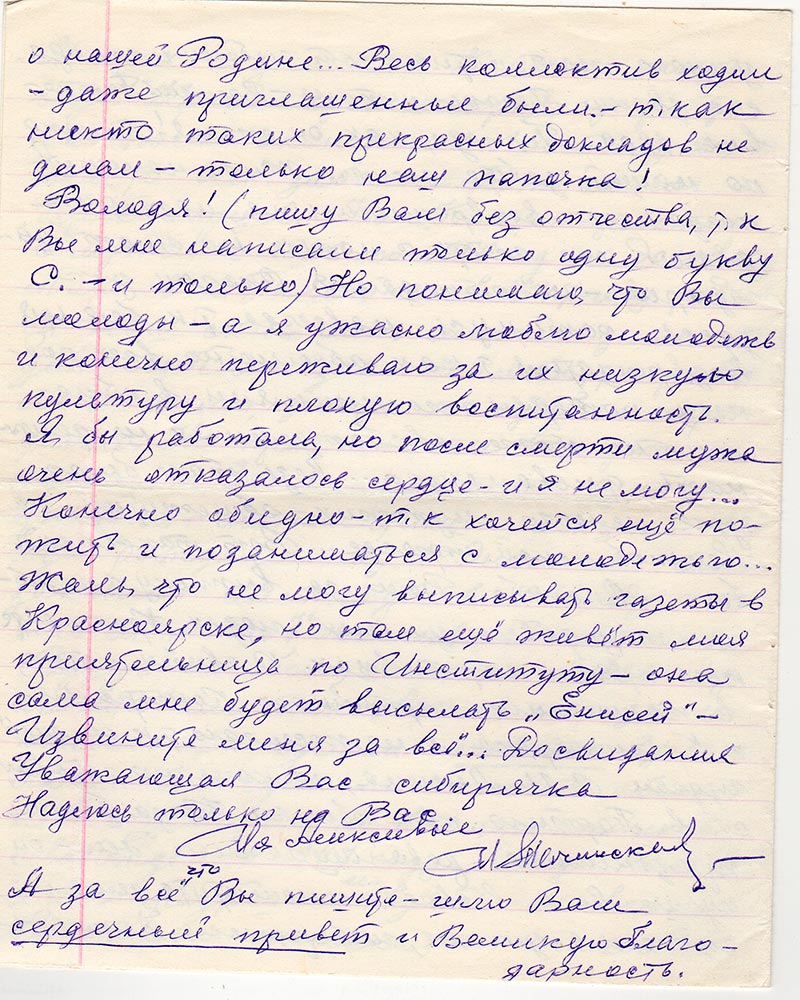 о нашей Родине... Весь коллектив ходил
- даже приглашенные были. - т. как
никто таких прекрасных докладов не
делал - только наш папочка!
Володя! (пишу Вам без отчества, т. к
Вы мне написали только одну букву
С. - и только) Но понимаю, что Вы
молоды - а я ужасно люблю молодежь
и конечно переживаю за их низкую
культуру и плохую воспитанность.
Я бы работала, но после смерти мужа
очень отказалось сердце - и я не могу...
Конечно обидно - т. к хочется ещё по-
жить и позаниматься с молодежью...
Жаль, что не могу выписывать газеты в
Красноярске, но там ещё живёт моя
приятельница по Институту - она
сама мне будет высылать „Енисей" -
Извините меня за всё... Досвидания
Уважающая Вас сибирячка
Надеюсь только на Вас.
А за всё что Вы пишите - шлю Вам
сердечный привет и Великую благо-
дарность.